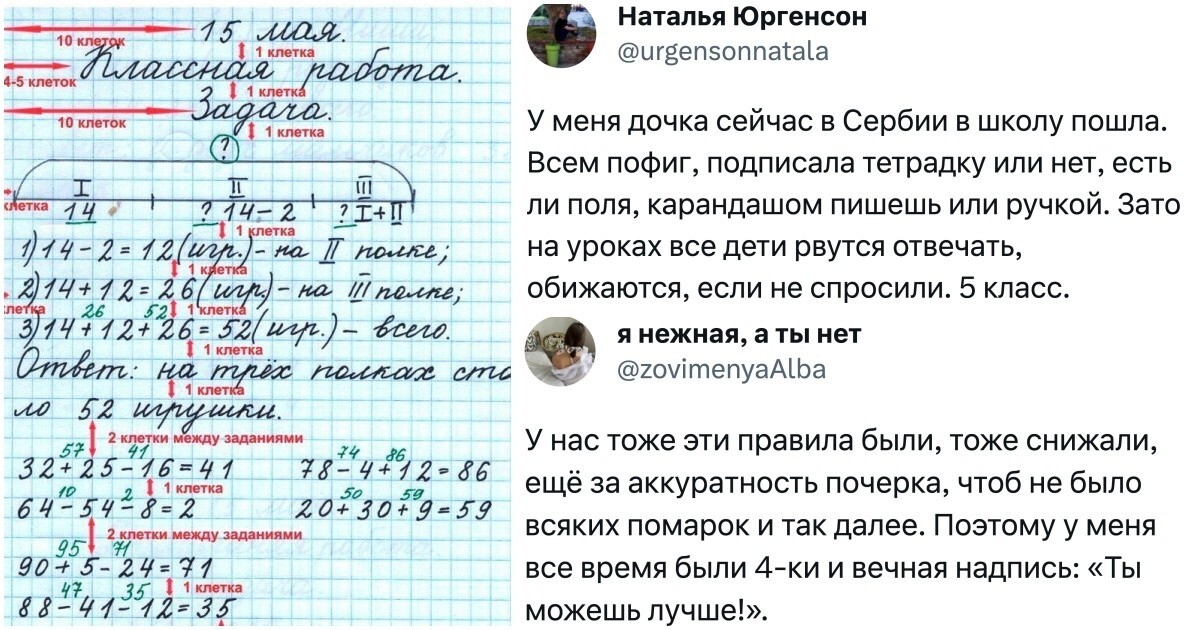 15 мая.
10 клеток
1 клетка
Классная работа.
4-5 клеток
1 клетка
Задача.
10 клеток
1 клетка
?
I II III
клетка
14 ? 14-2 ? I+II
1 клетка
1) 14-2=12(игр.)- на II полке;
1 клетка
2) 14+12=26(игр.)- на III полке;
летка
26 52
1 клетка
3) 14+12+26=52(игр.)- всего.
1 клетка
Ответ: на трёх полках сто
1 клетка
ло 52 игрушки.
2 клетки между заданиями
57 41 74 86
32+25-16=41 78-4+12=86
1 клетка
10 2 50 59
64-54-8=2 20+30+9=59
2 клетки между заданиями
95 71
90+5-24=71
1 клетка
47 35
88-41-12=35
Наталья Юргенсон
@urgensonnatala
У меня дочка сейчас в Сербии в школу пошла.
Всем пофиг, подписала тетрадку или нет, есть
ли поля, карандашом пишешь или ручкой. Зато
на уроках все дети рвутся отвечать,
обижаются, если не спросили. 5 класс.
я нежная, а ты нет
@zovimenyaAlba
У нас тоже эти правила были, тоже снижали,
ещё за аккуратность почерка, чтоб не было
всяких помарок и так далее. Поэтому у меня
все время были 4-ки и вечная надпись: «Ты
можешь лучше!».